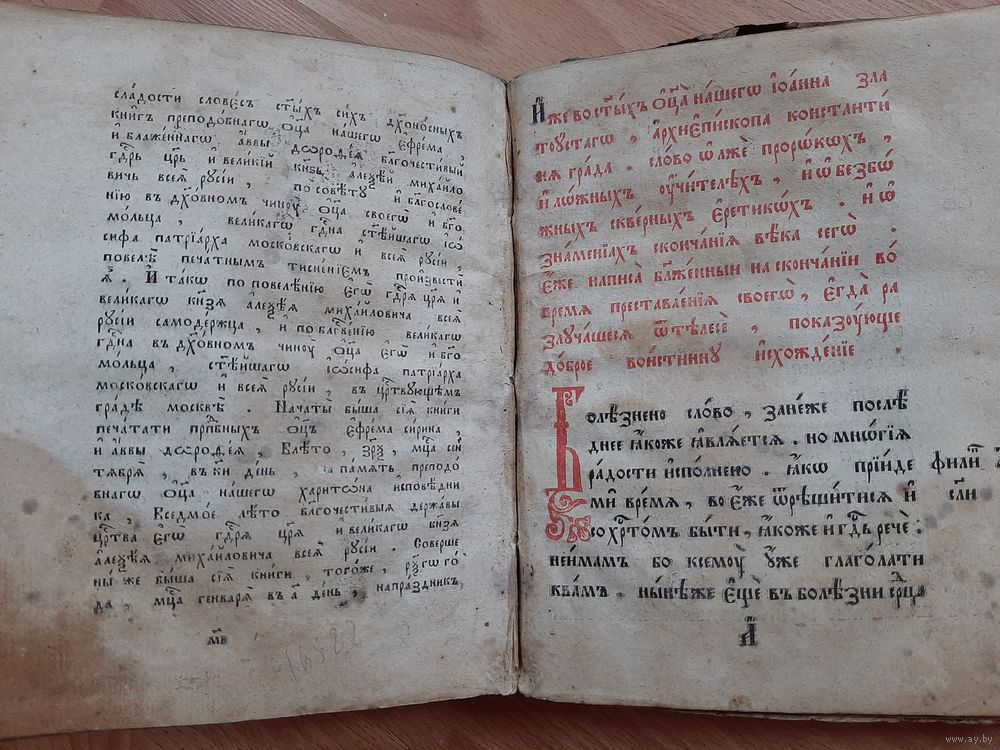 сла́дости слове́съ ст҃ы́хъ си́хъ дх҃оно́сныхъ
кни́гъ преподо́бнагѡ ѻ҆ц҃а̀ на́шегѡ є҆фре́ма,
и҆ блаже́ннагѡ а҆́ввы дѡроѳе́ѧ бл҃гочести́вый
гд҃рь цр҃ь и҆ вели́кїй кн҃зь а҆леѯе́й миха́йло
вичь всеѧ̀ русі́и, по совѣ́ту и҆ бл҃гослове
нїю въ дх҃овномъ чинѹ̀ ѻ҆ц҃а̀ своегѡ̀ и҆ бг҃о
мольца, вели́кагѡ гд҃на ст҃ѣ́йшагѡ і҆ѡ́
сифа патрїа́рха моско́вскагѡ и҆ всеѧ̀ русі́и,
повелѣ̀ печа́тнымъ тисне́нїемъ произвестѝ
ѧ҆̀. И҆ та́кѡ по повелѣ́нїю є҆гѡ̀ гд҃рѧ цр҃ѧ̀ и҆
вели́кагѡ кн҃зѧ а҆леѯе́ѧ миха́йловича всеѧ̀
русі́и самоде́ржца, и҆ по блг҃ве́нїю вели́кагѡ
гд҃на въ дх҃овномъ чинѹ̀ ѻ҆ц҃а̀ є҆гѡ̀ и҆ бг҃о
мо́льца, ст҃ѣ́йшагѡ і҆ѡ́сифа патрїа́рха
моско́вскагѡ и҆ всеѧ̀ русі́и, въ цр҃твующемъ
гра́дѣ москвѣ̀. Нача́ты бы́ша сїѧ̑ кни́ги
печа́тати прп҃бныхъ ѻ҆ц҃ъ є҆фре́ма си́рина,
и҆ а҆́ввы дѡроѳе́ѧ, Влѣ́то, ҂зрѯ҃, мц҃а сеⷩ
тѧ́брѧ, въ ки҃ де́нь, на па́мѧть преподо́
бнагѡ ѻ҆ц҃а̀ на́шегѡ харитѡ́на и҆сповѣ́дни
ка, Вседмо́е лѣ́то бл҃гочести́выѧ держа́вы
црⷭ҇тва є҆гѡ̀ гд҃рѧ цр҃ѧ̀ и҆ вели́кагѡ кн҃зѧ
а҆леѯе́ѧ миха́йловича всеѧ̀ русі́и. Соверше
ны́ же бы́ша сїѧ̑ кни́ги, тогѡ́же, го́
да, мц҃а генва́рѧ въ а҃ де́нь, на пра́здникъ
м҃в
16522
И҆́же во ст҃ы́хъ ѻ҆ц҃а̀ на́шегѡ і҆ѡа́нна зла
тоустагѡ, а҆рхїепи́скопа констѧнти́
нѧ гра́да. сло́во ѡ҆ лже́ проро́кѡхъ,
и҆ ло́жныхъ ѹ҆чи́телехъ, и҆ ѡ҆ безбо́
жныхъ скве́рныхъ є҆ретикѡ́хъ. и҆ ѡ҆
зна́менїахъ сконча́нїѧ вѣ́ка сегѡ̀.
є҆́же написа̀ бл҃же́нный на сконча́нїи во́
времѧ преставле́нїѧ своегѡ̀, є҆гда̀ ра
злуча́шесѧ ѿ тѣлесѐ, показѹ́юще
до́брое вои́стинну и҆схожде́нїе.
Болѣ́знено сло́во, зане́же послѣ́
днее ꙗ҆́коже ꙗ҆влѧ́етсѧ. но мнѡ́гїѧ
ра́дости и҆спо́лнено. ꙗ҆́кѡ прїи́де
ми̑ времѧ, во є҆́же ѿрѣши́тисѧ и҆
со хрⷭ҇то́мъ бы́ти, ꙗ҆́коже и҆ гд҃ь речѐ:
не и҆́мамъ бо ксемѹ̀ ѹ҆жѐ глаго́лати
к ва́мъ. ны́нѣ же є҆щѐ въ болѣ́зни срⷣца
фили́п
а҃
www.ay.by